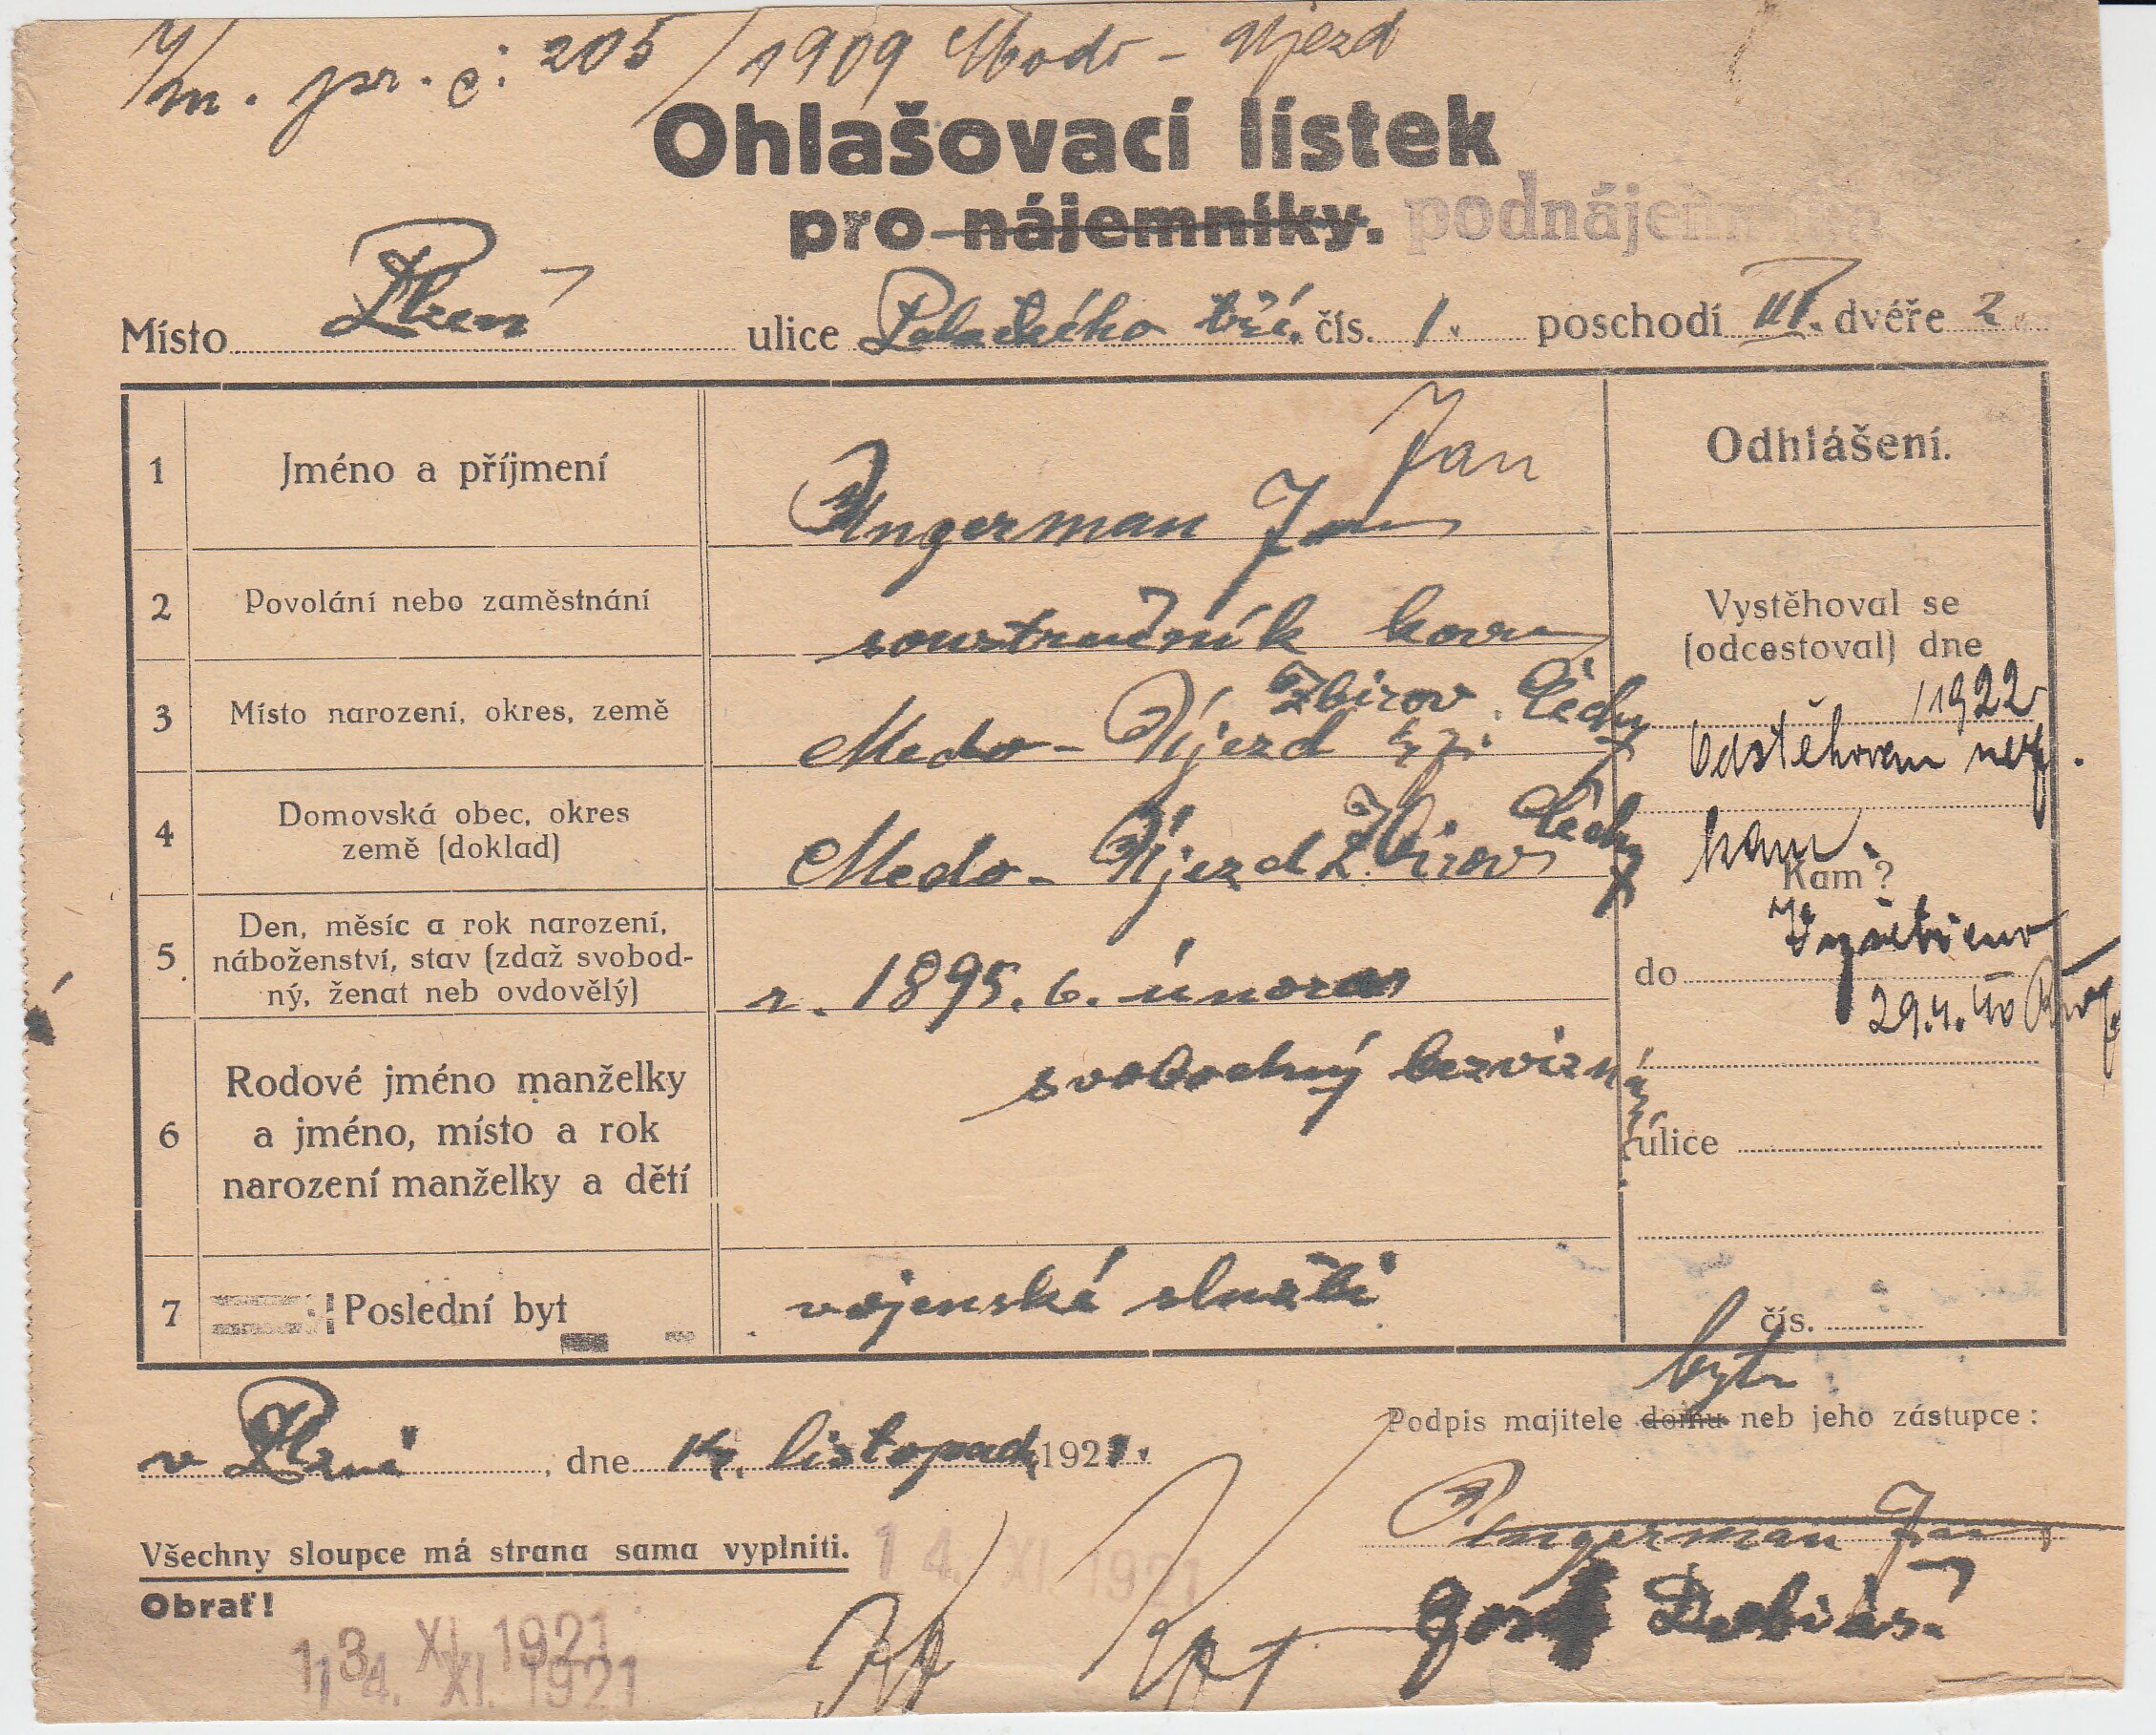 m. pr. č: 205/1909 Medo - Újezd
Ohlašovací lístek
pro nájemníky. podnájemníka
Místo Plzeň ulice Palackého tří. čís. 1. poschodí III. dvéře 2
1 Jméno a příjmení Ungerman Jan Jan
Odhlášení.
2 Povolání nebo zaměstnání soustružník kovu
Vystěhoval se
(odcestoval) dne
3 Místo narození, okres, země Medo - Újezd Zbirov Čechy
1922
Odstěhován
4 Domovská obec, okres
země (doklad) Medo - Újezd Zbirov Čechy
kam.
Kam?
5 Den, měsíc a rok narození,
náboženství, stav (zdaž svobod-
ný, ženat neb ovdovělý) r. 1895. 6. února
do Vyšetřeno
29.4.40
svobodný bezvyzná
6 Rodové jméno manželky
a jméno, místo a rok
narození manželky a dětí
ulice
7 Poslední byt vojenské službě
čís.
bytu
Podpis majitele domu neb jeho zástupce:
v Plzni, dne 14. listopad 1921.
Ungerman Jan
Všechny sloupce má strana sama vyplniti. 14. XI. 1921
Obrať!
Josef Tobiáš
13. XI. 1921
14. XI. 1921